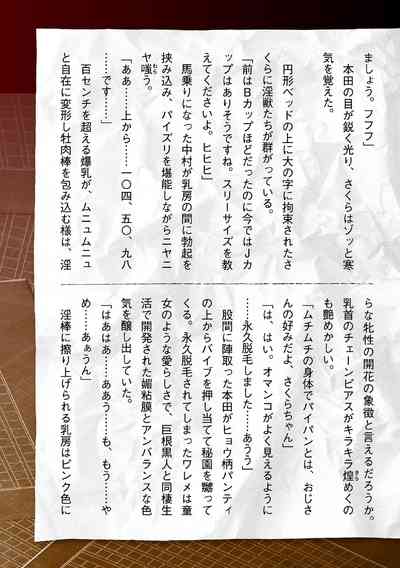 ましょう。フフフ」
　本田の目が鋭く光り、さくらはゾッと寒
気を覚えた。
　円形ベッドの上に大の字に拘束されたさ
くらに淫獣たちが群がっている。
「前はBカップほどだったのに今ではJカ
ップはありそうですね。スリーサイズを教
えてくださいよ。ヒヒヒ」
　馬乗りになった中村が乳房の間に勃起を
挟み込み、パイズリを堪能しながらニヤニ
ヤ嗤う。
「ああ……上から……一〇四、五〇、九八
……です……」
　百センチを超える爆乳が、ムニュムニュ
と自在に変形し牡肉棒を包み込む様は、淫
らな牝性の開花の象徴と言えるだろうか。
乳首のチェーンピアスがキラキラ煌めくの
も艶めかしい。
「ムチムチの身体でパイパンとは、おじさ
んの好みだよ、さくらちゃん」
「は、はい。オマンコがよく見えるように
……永久脱毛しました……あうう」
　股間に陣取った本田がヒョウ柄パンティ
の上からバイブを押し当てて秘園を嬲って
くる。永久脱毛されてしまったワレメは童
女のような愛らしさで、巨根黒人と同棲生
活で開発された媚粘膜とアンバランスな色
気を醸し出していた。
「はあはあ……ああう……も、もう……や
め……あぁうん」
　淫棒に擦り上げられる乳房はピンク色に